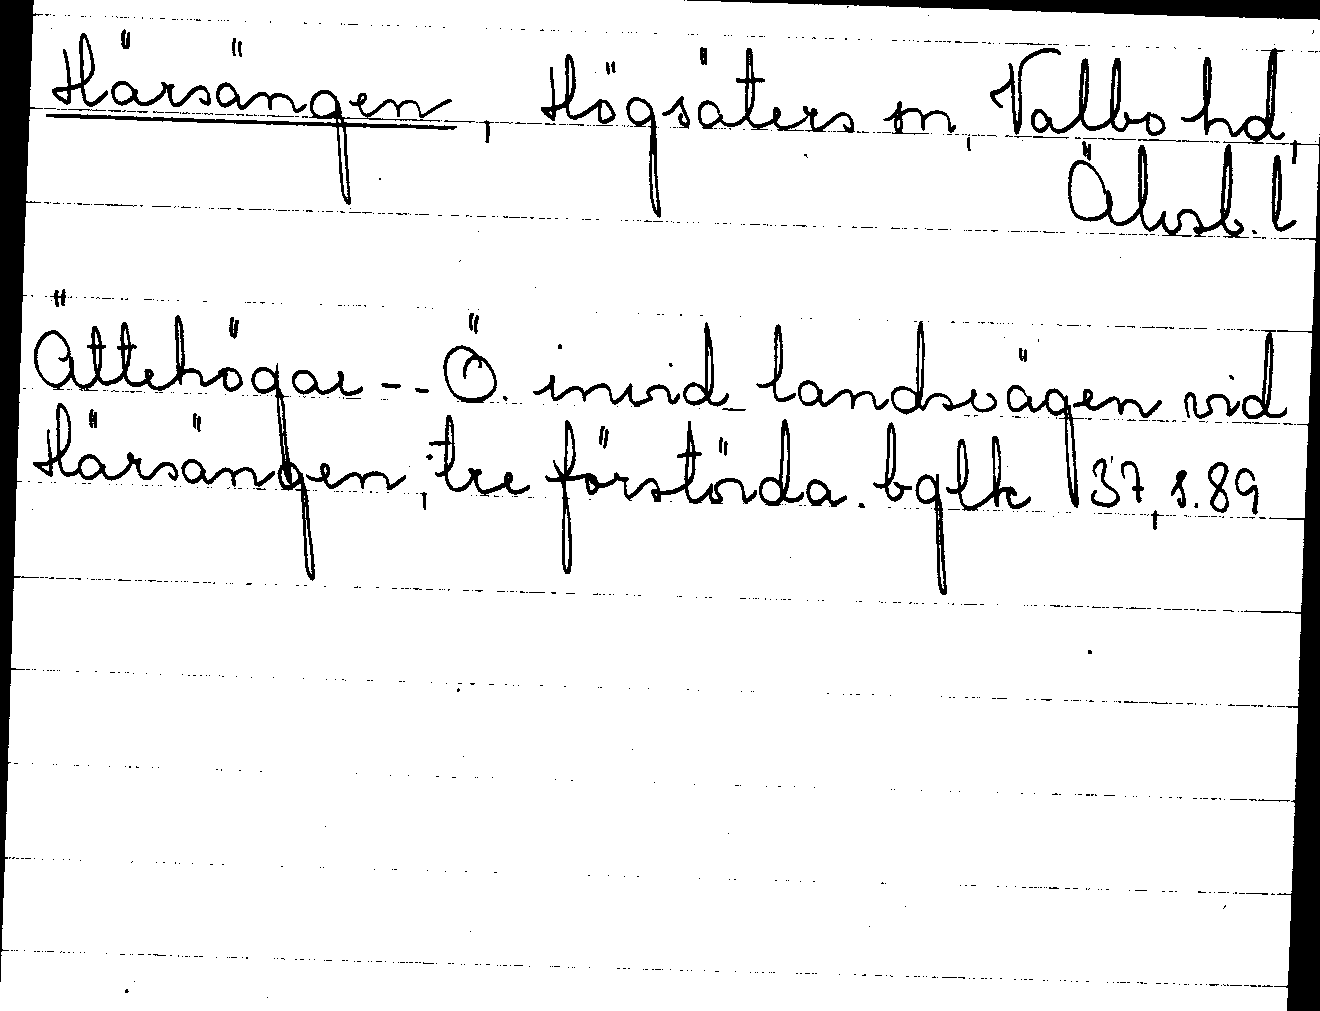 Härsängen, Högsäters sn, Valbo hd,
Älvsb. l
Ättehögar -- Ö. invid landsvägen vid
Härsängen, tre förstörda. bglk 137, s. 89